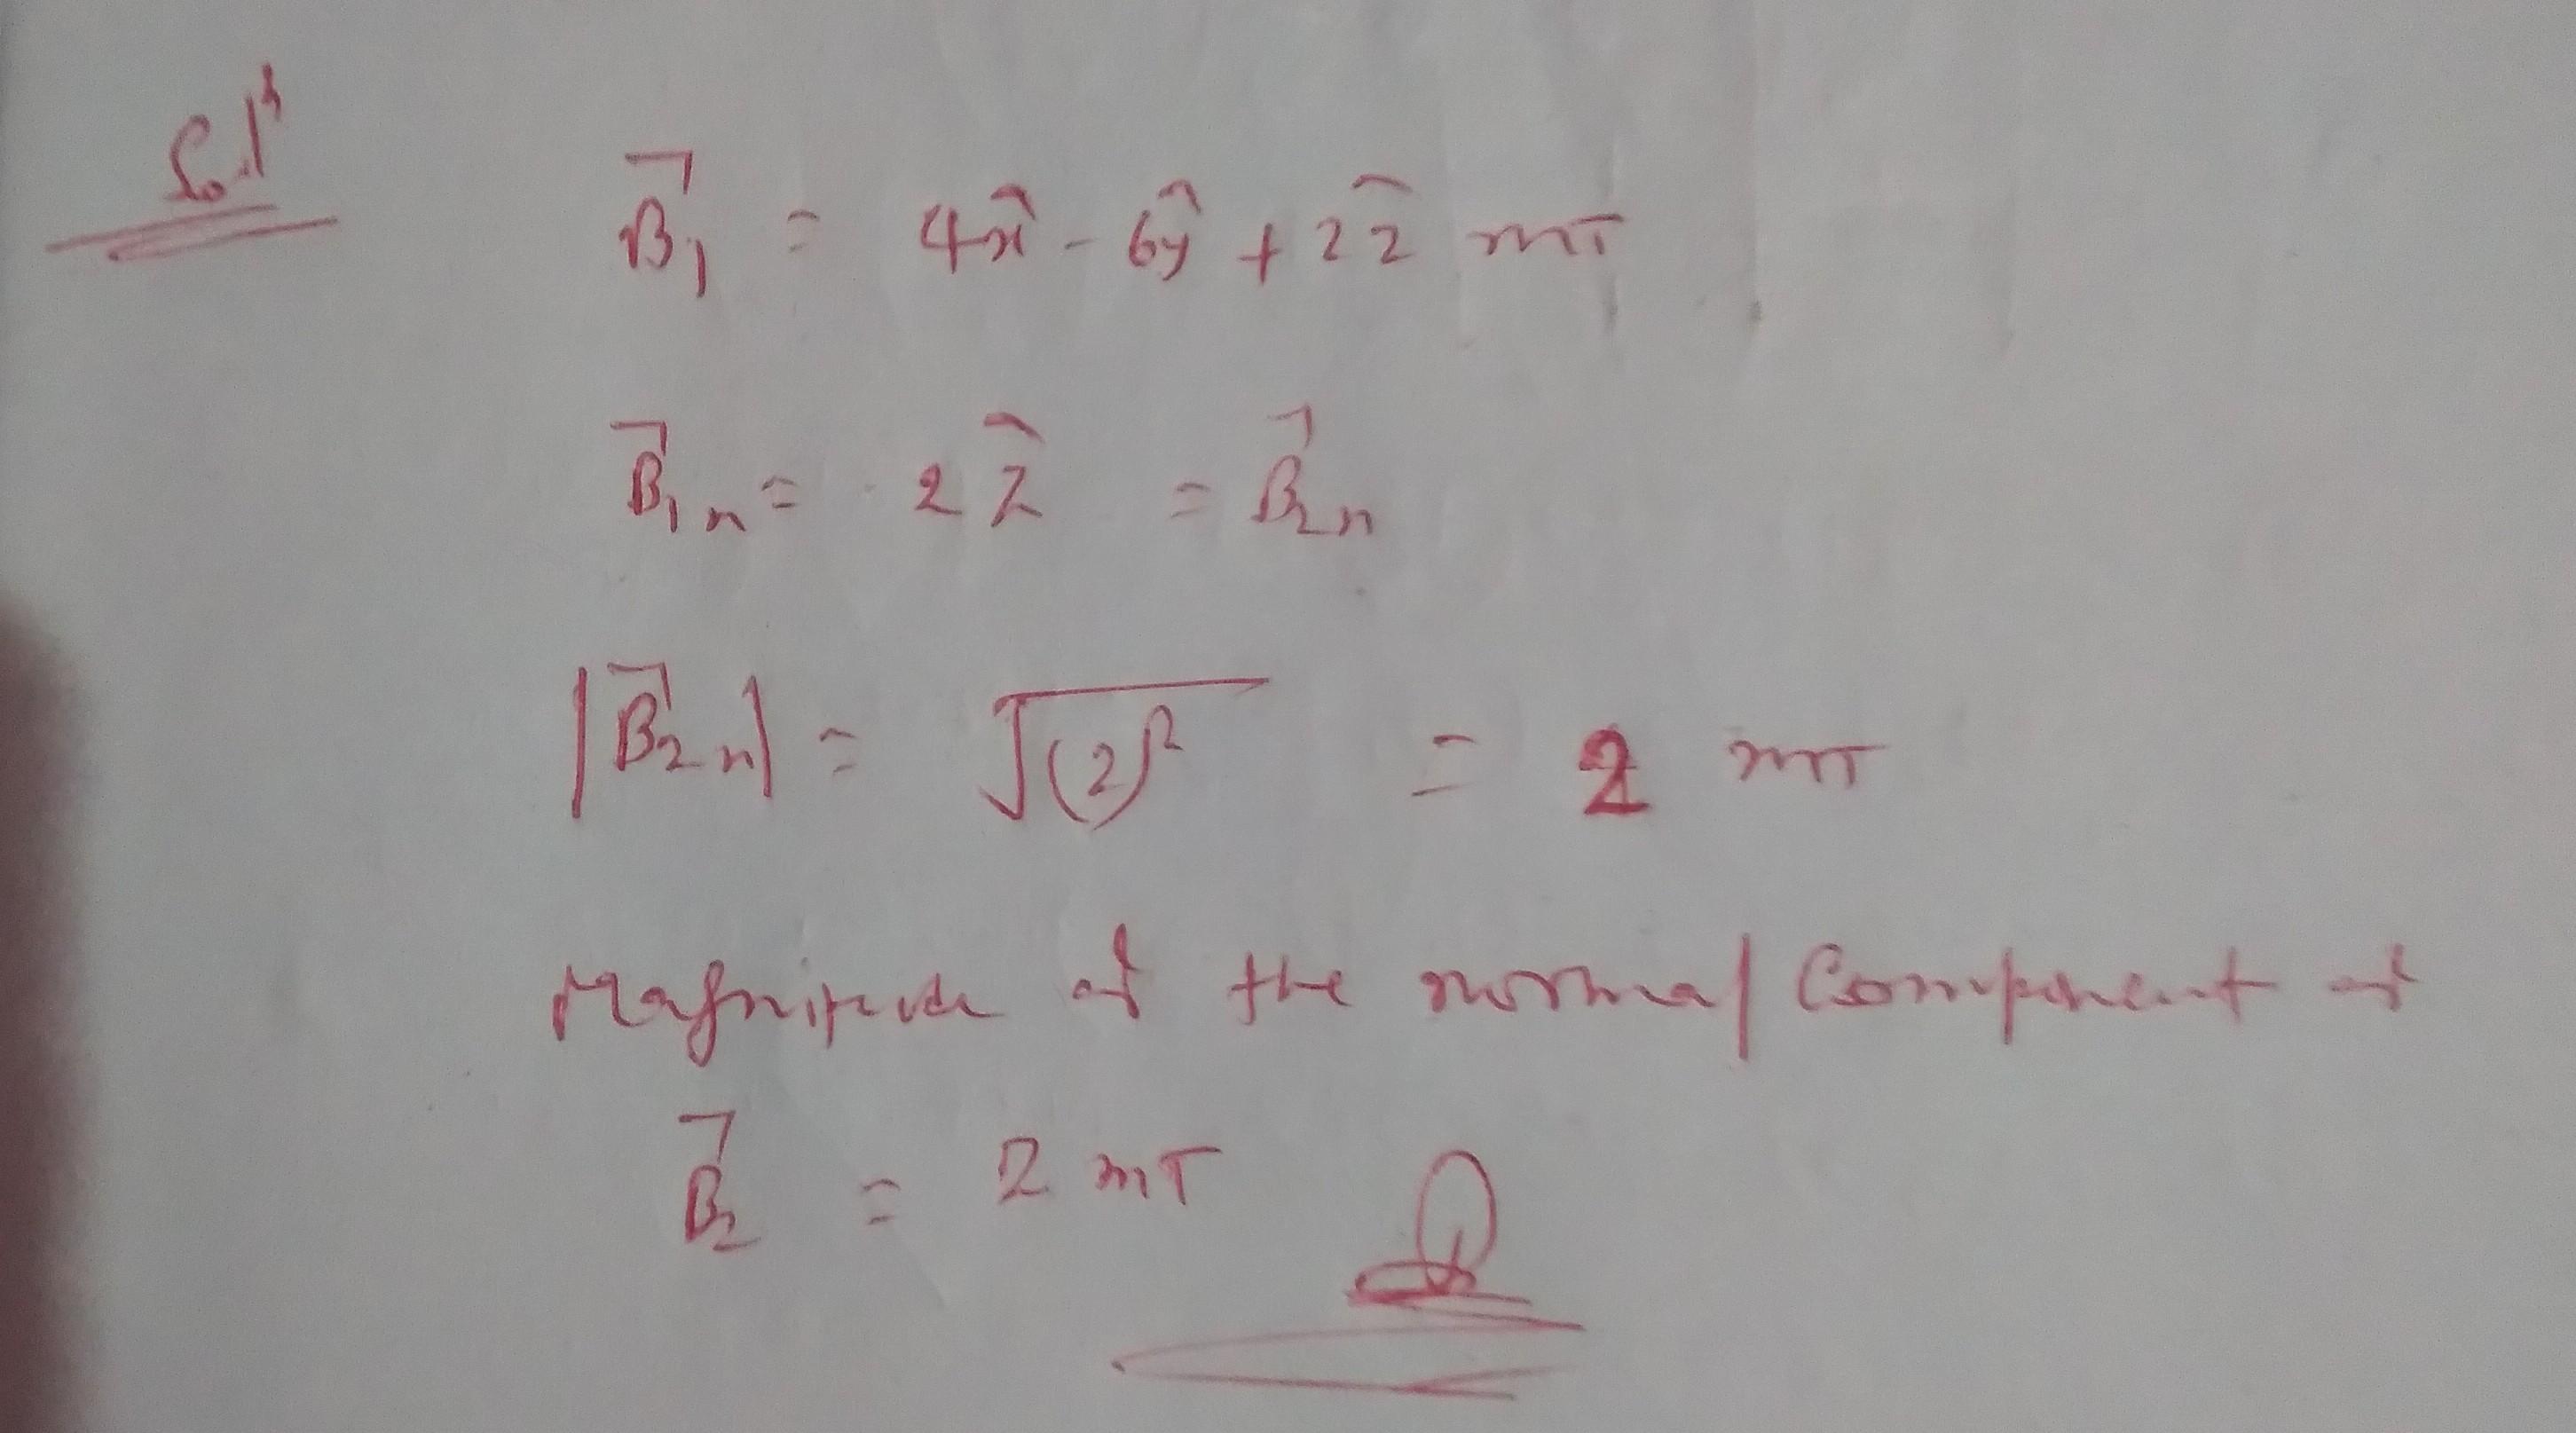 Solⁿ
B⃗₁ = 4x̂ - 6ŷ + 2ẑ mT
B⃗₁ₙ = 2ẑ = B⃗₂ₙ
|B⃗₂ₙ| = √(2)² = 2 mT
Magnitude of the normal Component of
B⃗₂ = 2 mT